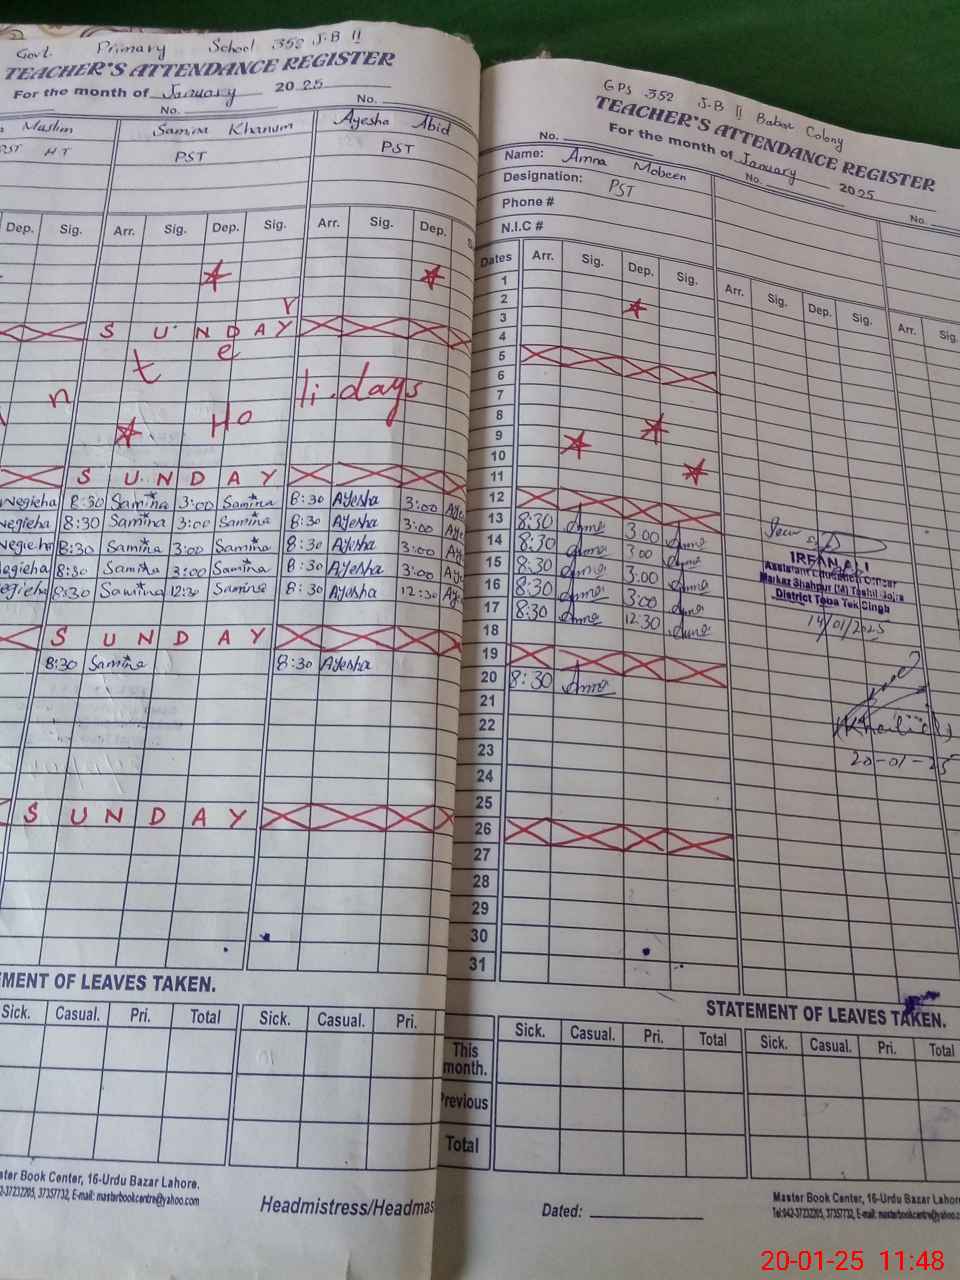 Govt. Primary School 352 J.B II
TEACHER'S ATTENDANCE REGISTER
For the month of January 2025
No. No.
Muslim Samina Khanum Ayesha Abid
PST HT PST PST
Dep. Sig. Arr. Sig. Dep. Sig. Arr. Sig. Dep.
SUNDAY
n t e r
Holi.days
SUNDAY
8:30 Samina 3:00 Samina 8:30 Ayesha 3:00 Aye
8:30 Samina 3:00 Samina 8:30 Ayesha 3:00 Ay
8:30 Samina 3:00 Samina 8:30 Ayesha 3:00 Ay
8:30 Samina 3:00 Samina 8:30 Ayesha 3:00 Ay
8:30 Samina 12:30 Samina 8:30 Ayesha 12:30 Ay
SUNDAY
8:30 Samina 8:30 Ayesha
SUNDAY
EMENT OF LEAVES TAKEN.
Sick. Casual. Pri. Total Sick. Casual. Pri.
ster Book Center, 16-Urdu Bazar Lahore.
2-37232205, 37357732, E-mail: masterbookcentre@yahoo.com
Headmistress/Headmas
GPS 352 J.B II Babar Colony
TEACHER'S ATTENDANCE REGISTER
For the month of January 2025
No. No. No.
Name: Amna Mobeen
Designation: PST
Phone #
N.I.C #
Dates Arr. Sig. Dep. Sig. Arr. Sig. Dep. Sig. Arr. Sig.
1
2
3
4
5
6
7
8
9
10
11
12
13 8:30 Amna 3:00 Amna
14 8:30 Amna 3:00 Amna
15 8:30 Amna 3:00 Amna
16 8:30 Amna 3:00 Amna
17 8:30 Amna 12:30 Amna
18
19
20 8:30 Amna
21
22
23
24
25
26
27
28
29
30
31
IRFAN ALI
Assistant Education Officer
Markaz Shahpur (M) Tehsil Gojra
District Toba Tek Singh
14/01/2025
(Khalid)
20-01-25
STATEMENT OF LEAVES TAKEN.
Sick. Casual. Pri. Total Sick. Casual. Pri. Total
This month.
Previous
Total
Master Book Center, 16-Urdu Bazar Lahore
Tel:042-37232205, 37357732, E-mail: masterbookcentre@yahoo.co
Dated:
20-01-25 11:48